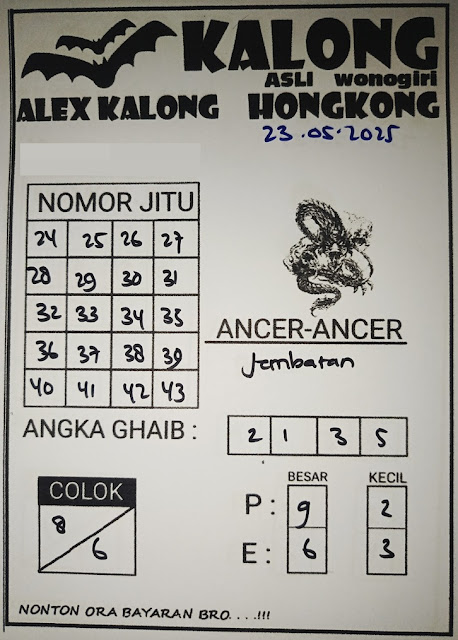 KALONG
ASLI wonogiri
ALEX KALONG HONGKONG
23.05.2025
NOMOR JITU
24 25 26 27
28 29 30 31
32 33 34 35
36 37 38 39
40 41 42 43
ANCER-ANCER
Jembatan
ANGKA GHAIB : 2 1 3 5
COLOK
8
6
BESAR KECIL
P : 9 2
E : 6 3
NONTON ORA BAYARAN BRO. . . .!!!